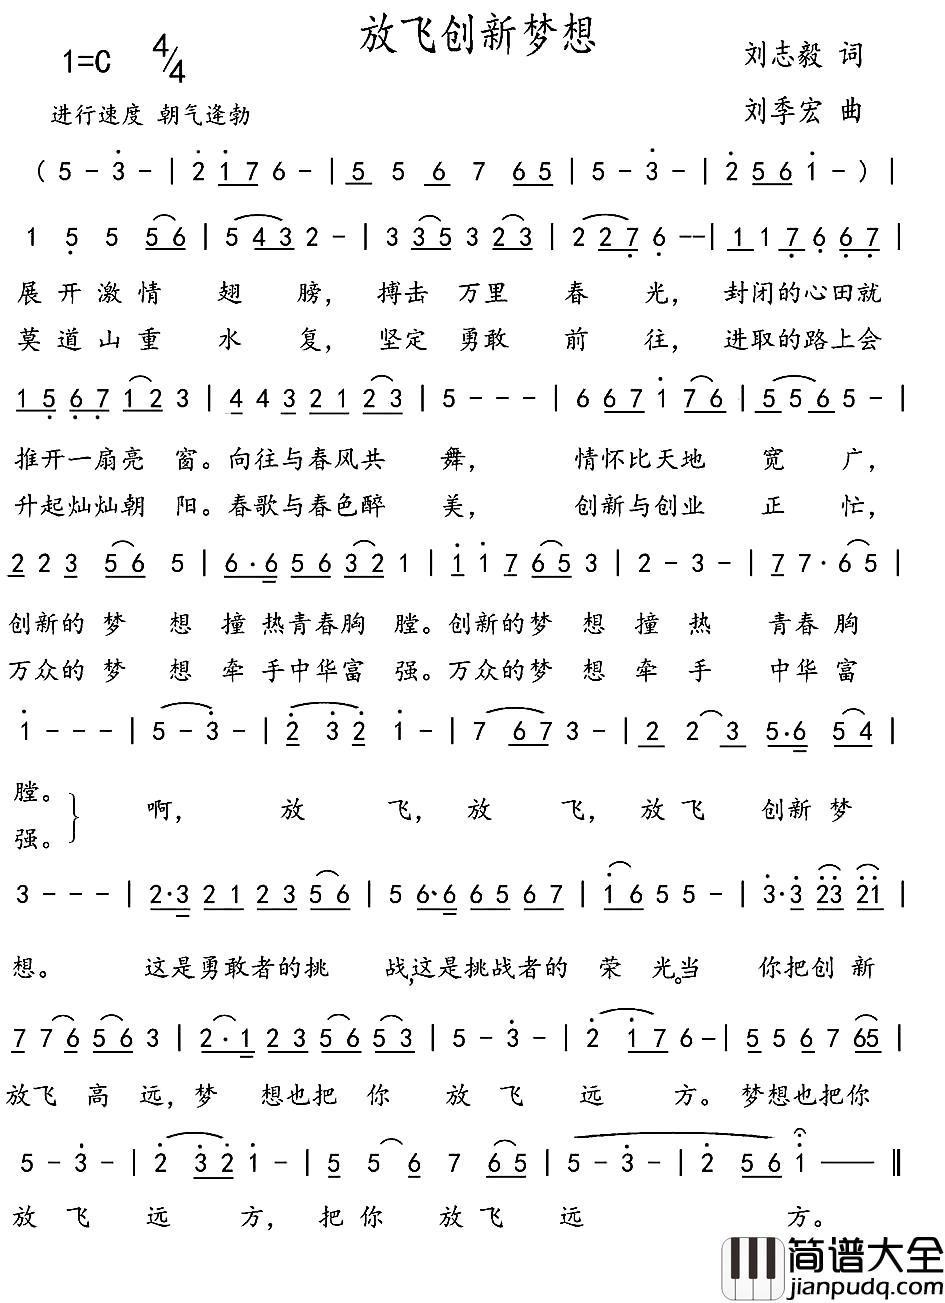 放飞创新梦想
1=C 4/4
刘志毅 词
进行速度 朝气逢勃
刘季宏 曲
( 5 - 3 - | 2 1 7 6 - | 5 5 6 7 6 5 | 5 - 3 - | 2 5 6 1 - ) |
1 5 5 5 6 | 5 4 3 2 - | 3 3 5 3 2 3 | 2 2 7 6 -- | 1 1 7 6 6 7 |
展 开 激 情 翅 膀, 搏击 万里 春 光, 封闭的心田就
莫 道 山 重 水 复, 坚定 勇敢 前 往, 进取的路上会
1 5 6 7 1 2 3 | 4 4 3 2 1 2 3 | 5 - - - | 6 6 7 1 7 6 | 5 5 6 5 - |
推开一扇亮 窗。向往与春风共 舞, 情怀比天地 宽 广,
升起灿灿朝 阳。春歌与春色醉 美, 创新与创业 正 忙,
2 2 3 5 6 5 | 6 · 6 5 6 3 2 1 | 1 1 7 6 5 3 | 2 - 3 - | 7 7 · 6 5 |
创新的 梦 想 撞 热青春胸 膛。创新的梦 想 撞 热 青春 胸
万众的 梦 想 牵 手中华富 强。万众的梦 想 牵 手 中华 富
1 - - - | 5 - 3 - | 2 3 2 1 - | 7 6 7 3 - | 2 2 3 5 · 6 5 4 |
膛。
强。
啊, 放 飞, 放 飞, 放 飞 创新 梦
3 - - - | 2 · 3 2 1 2 3 5 6 | 5 6 · 6 6 5 6 7 | 1 6 5 5 - | 3 · 3 2 3 2 1 |
想。 这是勇敢者的挑 战,这是挑战者的 荣 光。当 你把创 新
7 7 6 5 6 3 | 2 · 1 2 3 5 6 5 3 | 5 - 3 - | 2 1 7 6 - | 5 5 6 7 6 5 |
放飞 高 远, 梦 想也把 你 放 飞 远 方。 梦想也把你
5 - 3 - | 2 3 2 1 - | 5 5 6 7 6 5 | 5 - 3 - | 2 5 6 1 —— ‖
放 飞 远 方, 把 你 放 飞 远 方。
简谱大全
jianpudq.com